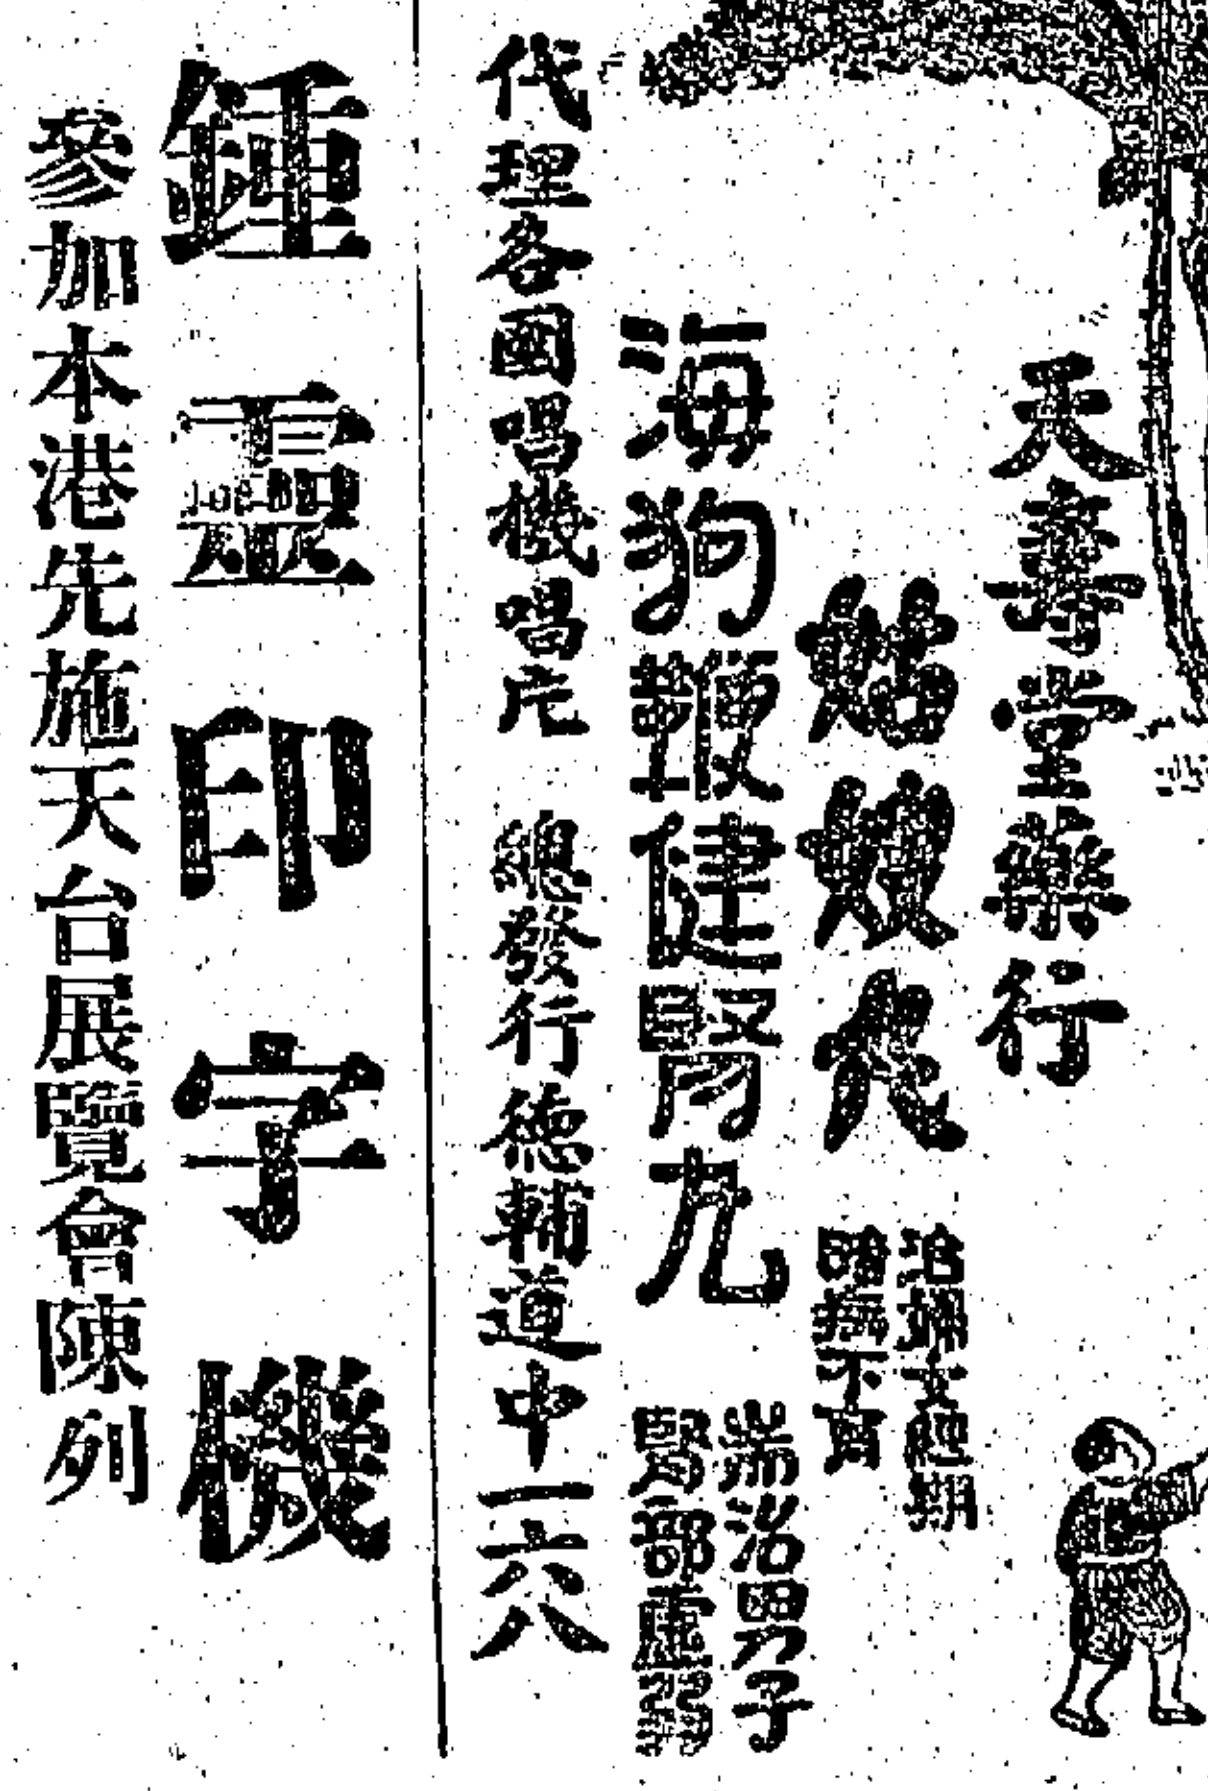 天壽堂藥行
姑嫂丸
治婦女經期
暗病不育
海狗鞭健腎丸
耑治男子
腎部
代理各國唱機唱片 總發行德輔道中一六八
鍾靈印字機
參加本港先施天台展覽會陳列